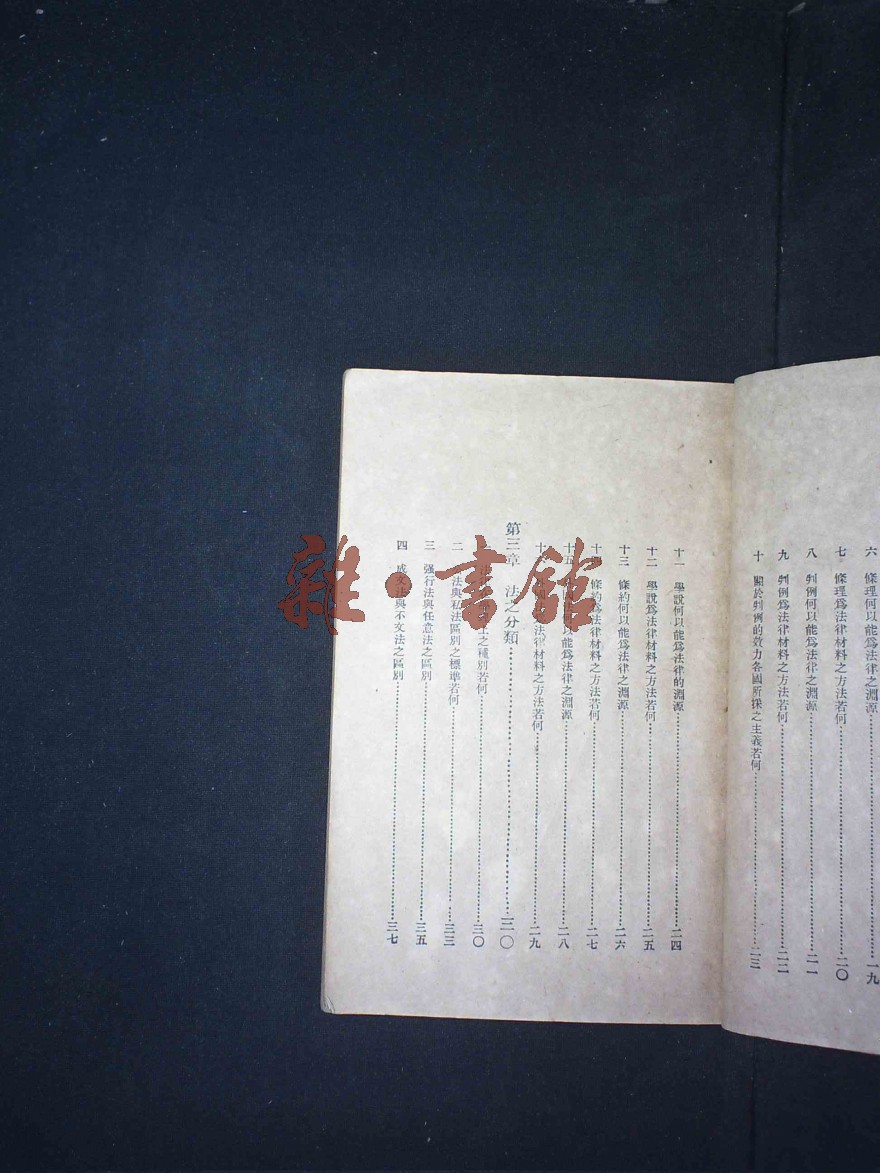 六 條理何以能爲法律之淵源 一九
七 條理爲法律材料之方法若何 二〇
八 判例何以能爲法律之淵源 二一
九 判例爲法律材料之方法若何 二二
十 關於判例的效力各國所採之主義若何 二三
十一 學說何以能爲法律的淵源 二四
十二 學說爲法律材料之方法若何 二五
十三 條約何以能爲法律之淵源 二六
十四 條約爲法律材料之方法若何 二七
十五 何以能爲法律之淵源 二八
十 法律材料之方法若何 二九
第三章 法之分類 三〇
之種別若何 三〇
二 法與私法區別之標準若何 三三
三 强行法與任意法之區別 三五
四 成文法與不文法之區別 三七
雜·書館